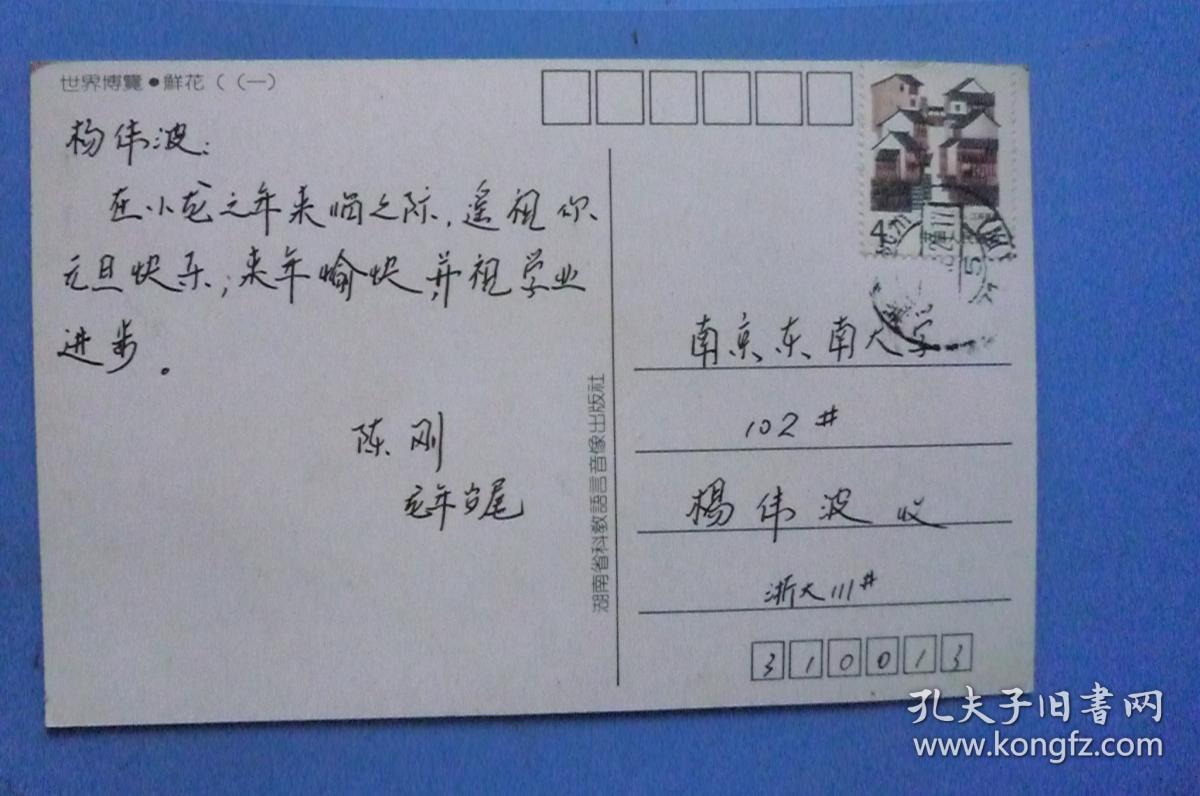 世界博覽●鮮花（（一）
杨伟波：
在小龙之年来临之际，遥祝你
元旦快乐；来年愉快，并祝学业
进步。
陈刚
龙年岁尾
湖南省科教語言音像出版社
4
南京东南大学
102#
楊伟波 收
浙大111#
310013
孔夫子旧書网
www.kongfz.com